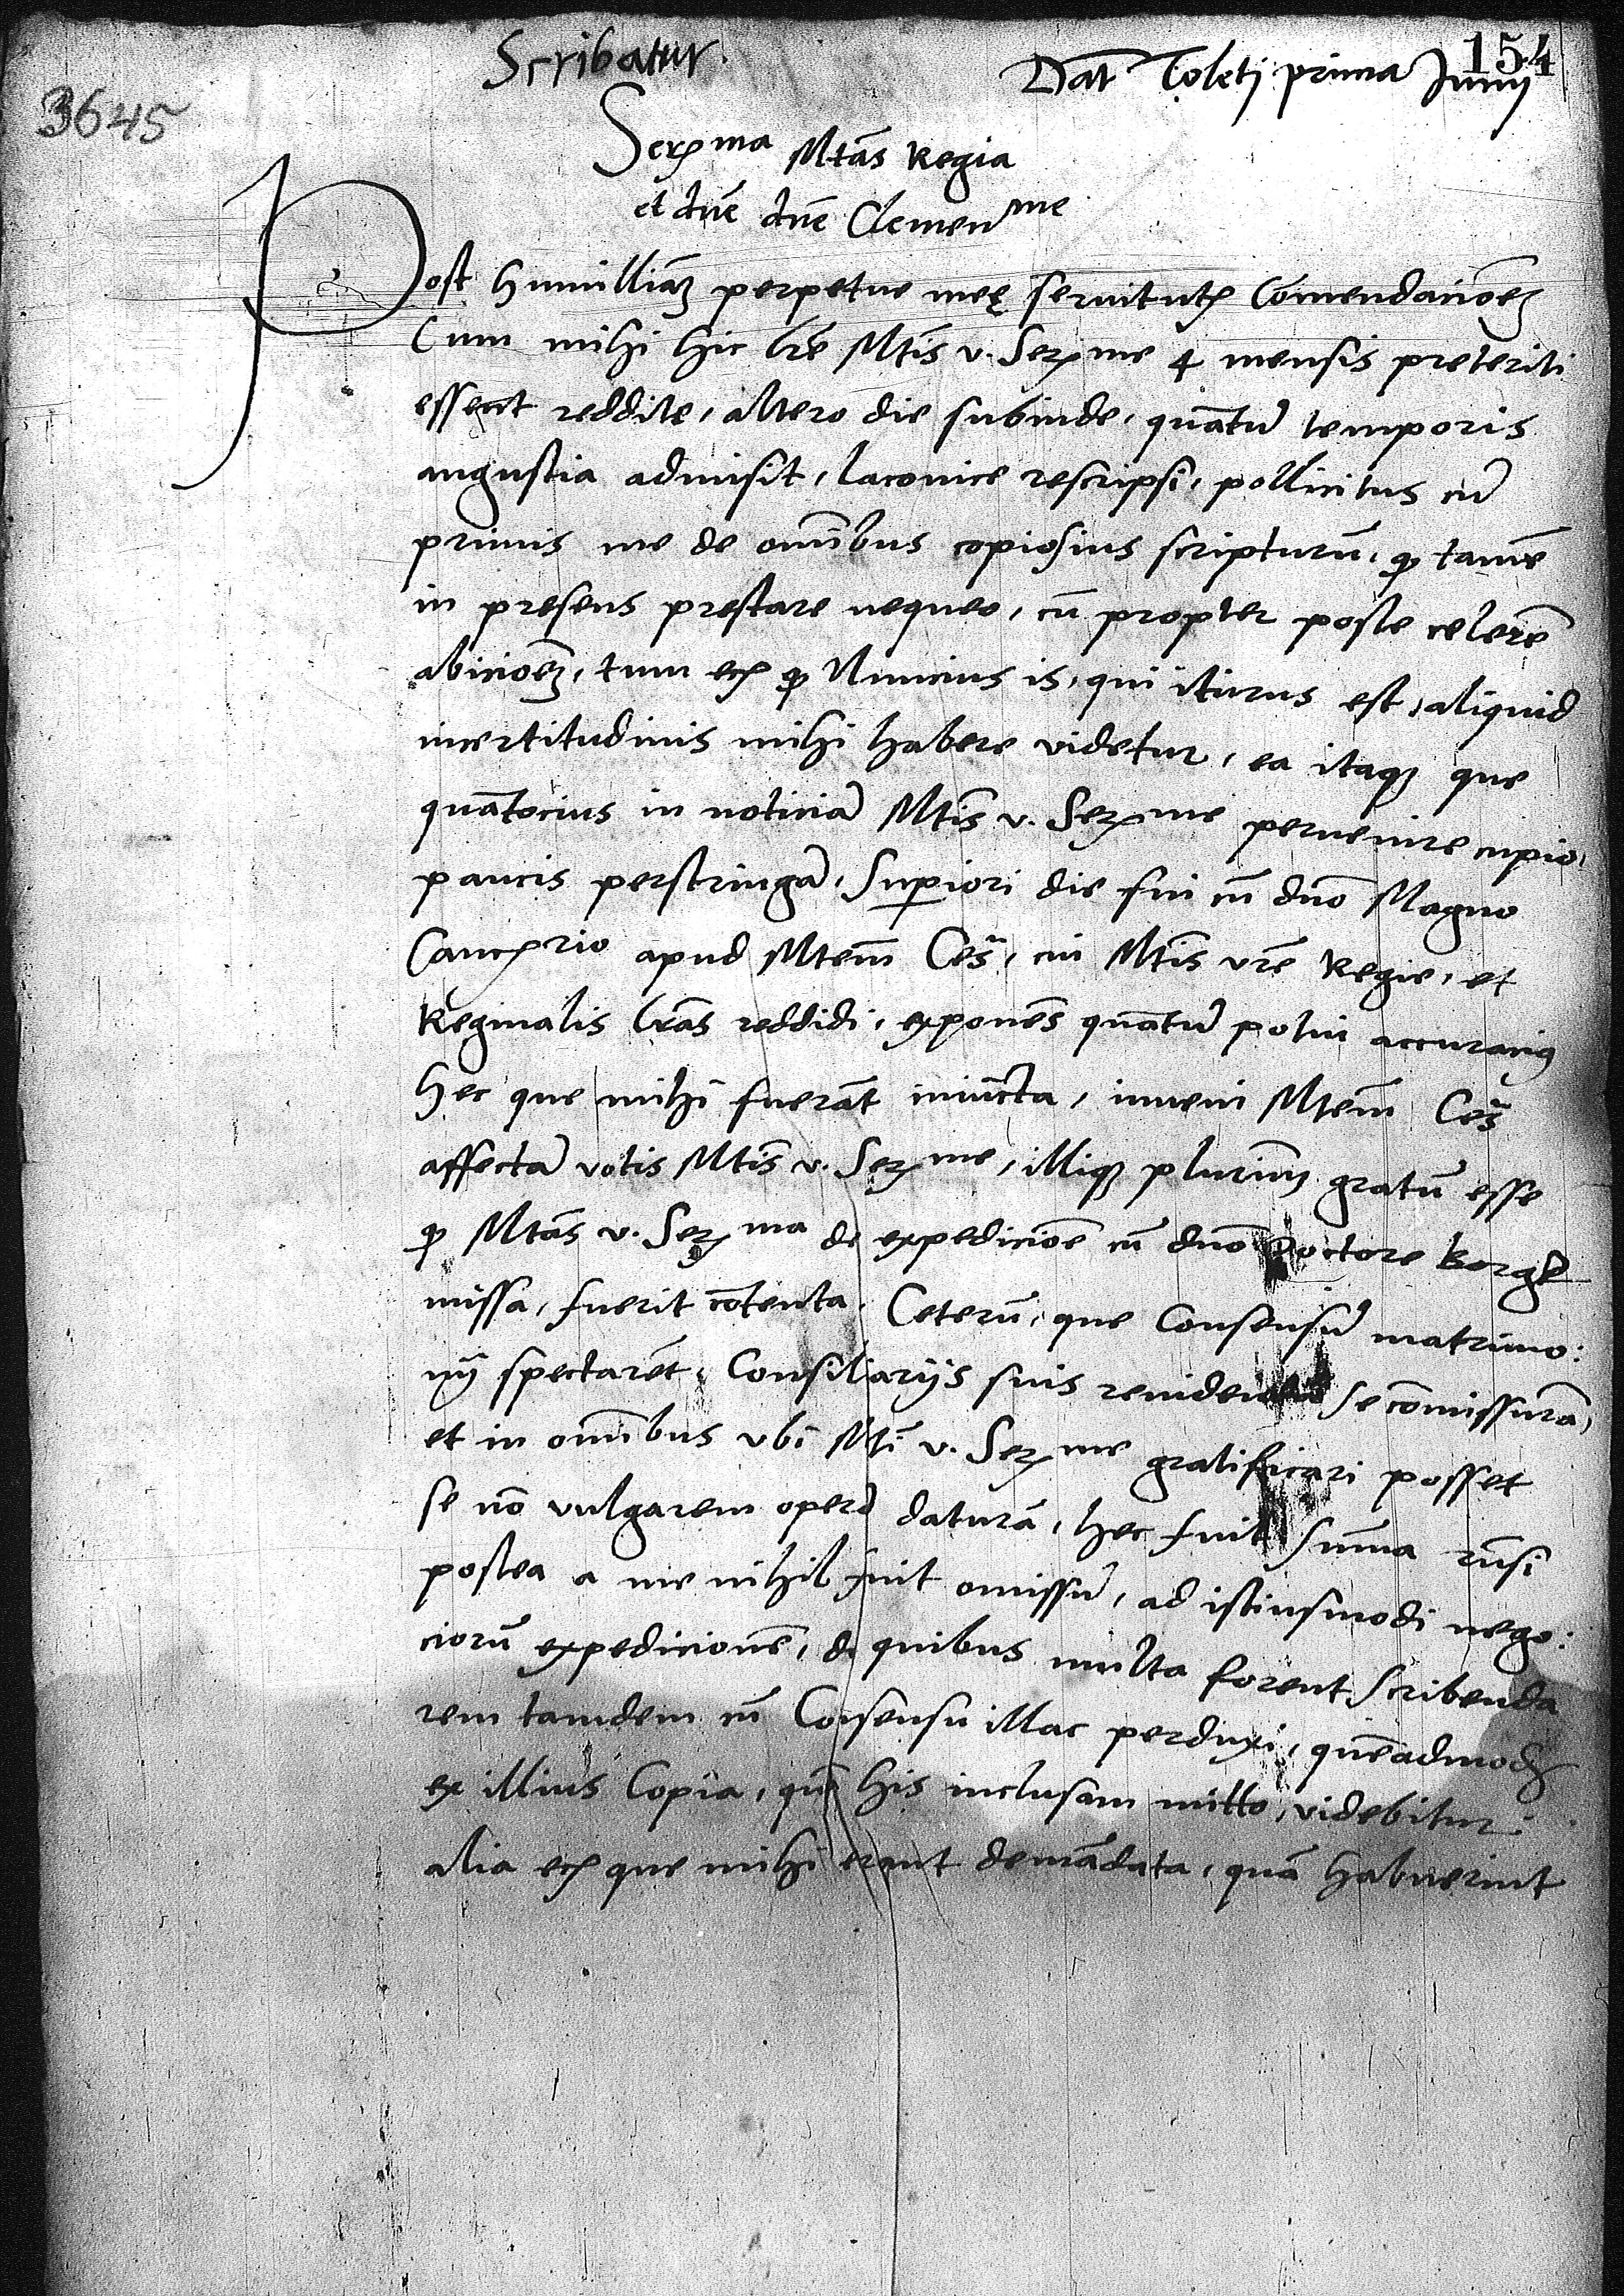 154
Scribatur.
Dat Toletj prima Junij
3645
Serma Mtas Regia
et dne dne Clemenme
Post humilliaz perpetue meę seruitutis Comendacioez
Cum mihi hic lre Mtis v. Serme 4 mensis preteriti
essent redditę, altero die subinde, quatu temporis
angustia admisit, laconice rescripsi, pollicitus cu
primis me de omibus copiosius scripturu, q tame
in presens prestare nequeo, cu propter poste celere
abicioez, tum ec q Nuncius is, qui iturus est, aliquid
incertitudinis mihi habere videtur, ea itaq que
quatocius in noticia Mtis v. Serme peruenire cupio,
paucis perstringa, Superiori die fui cu dno Magno
Cancrio apud Mtem Ces, cui Mtis vre Regie, et
Reginalis lras reddidi, exponens quatu potui accuracius
hec que mihi fuerat iniucta, inueni Mtem Ces
affecta votis Mtis v. Serme, illiq plurimu gratu esse
q Mtas v. Serma de expedicioe cu dno Doctore Borgh
missa, fuerit cotenta. Ceteru, que Consensu matrimo:
nij spectaret, Consiliarijs suis se comissura,
et in omibus vbi Mti v. Serme gratificari posset
se no vulgarem opera datura, hec fuit Suma rusi
postea a me nihil fuit omissu, ad istiusmodi nego:
cioru expedicione, de quibus multa forent scribenda
rem tamdem cu Consensu illac perduxi, queadmodu
ex illius Copia, qua his inclusam mitto, videbitur.
alia ec que mihi erant demadata, qua habuerint